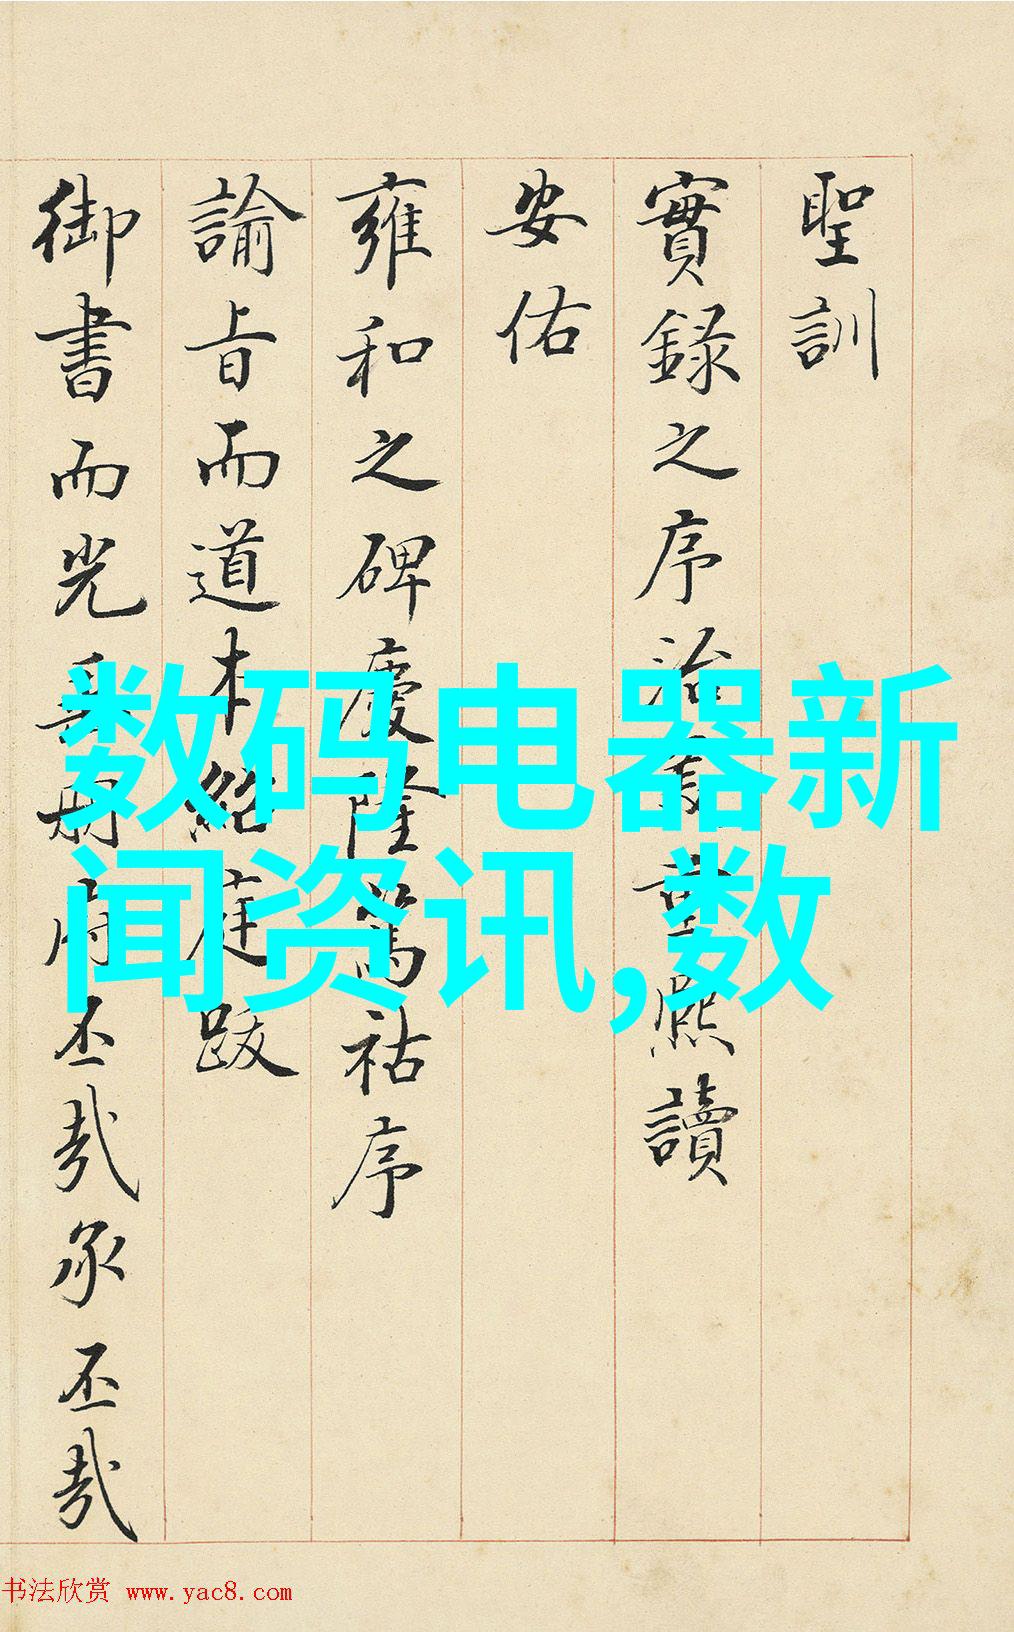 聖訓
實錄之序治
熙讀
安佑
雍和之碑慶隆篤祜序
諭旨而道本紹庭跋
御書而光
府丕哉承丕哉
数码电器新
闻资讯,数
书法欣赏 www.yac8.com